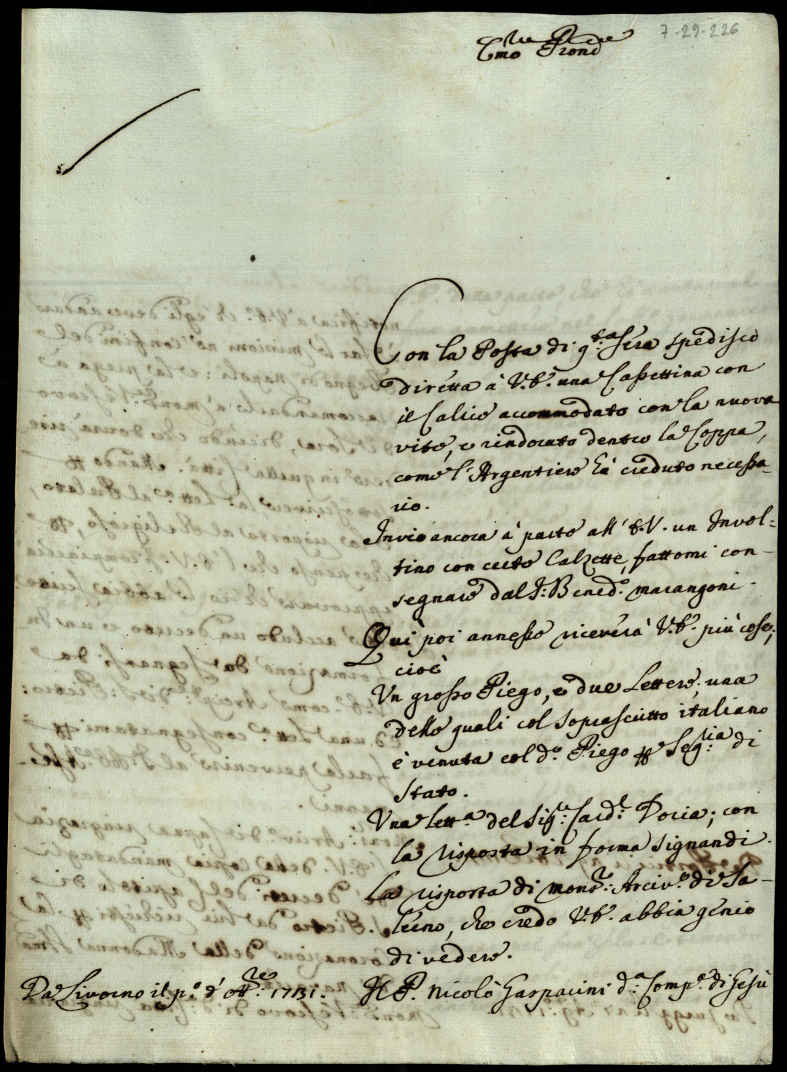 7-29-226
Emo Prone
Con la Posta di q.ta sera spedisco
diretta à V.E. una Cassettina con
il Calice accommodato con la nuova
vite, e rindorato dentro la Coppa,
come l'Argentiere hà creduto necessa-
rio.
Invio ancora à parte all'E.V. un Invol-
tino con certe Calzette, fattomi con-
segnare dal S: Bened.o Marangoni.
Qui poi annesse riceverà V.E. più cose,
cioè
Un grosso Piego, e due Lettere, una
delle quali col soprascritto italiano
è venuta col d.o Piego Seg.ria di
Stato.
Una lett.a del Sig.r Card.l Doria; con
la risposta in forma signandi.
La risposta di mons.r Arciv.o di Sa-
lerno, che credo V.E. abbia genio
di vedere.
Da Livorno il p.o d'Ott.re 1731.
Il P. Nicolò Gasparini d.a Comp.a di Gesù